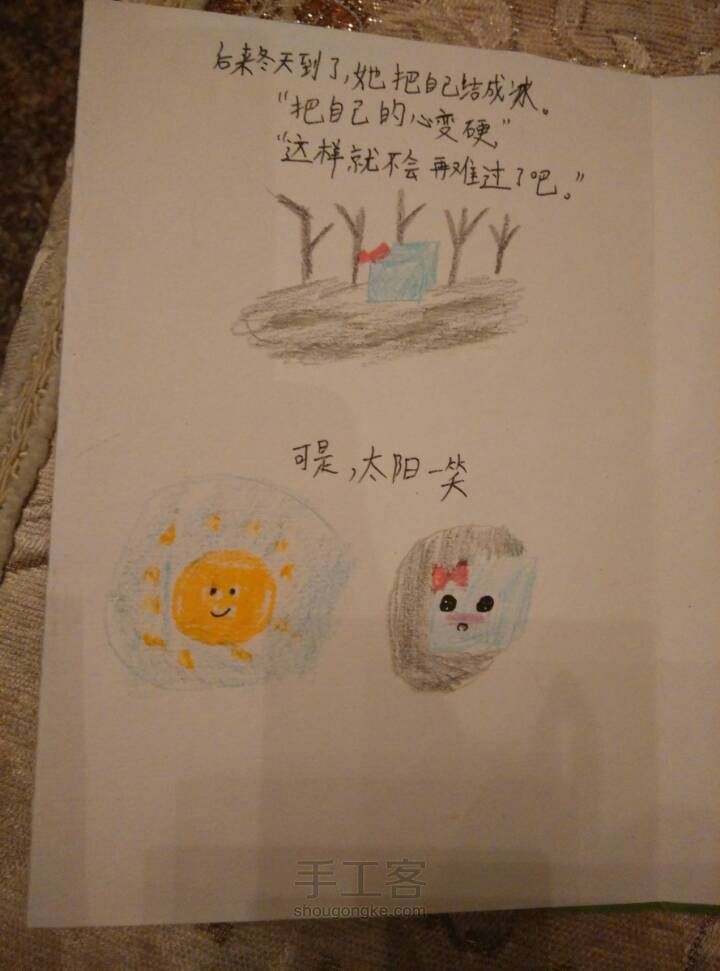 后来冬天到了，她把自己结成冰。
“把自己的心变硬”
“这样就不会再难过了吧。”
可是，太阳一笑
手工客
shougongke.com